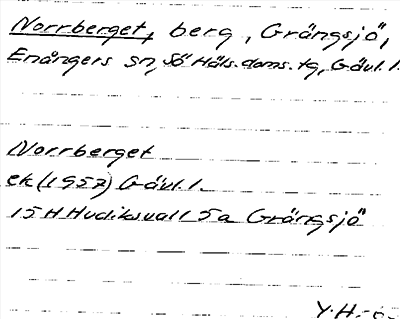 Norrberget, berg, Grängsjö,
Enångers sn, Sö Häls. doms. tg, Gävl. l.
Norrberget
ek (1957) Gävl. l.
15 H Hudiksvall 5a Grängsjö
Y. H-ö-